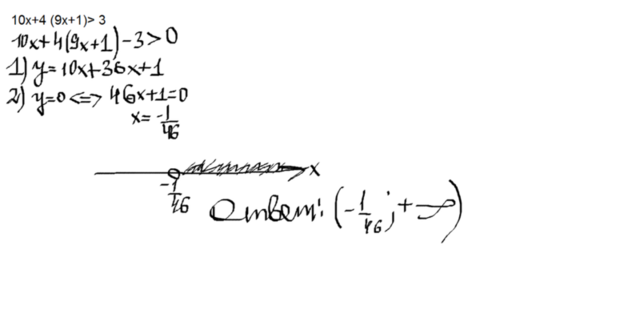 10x+4 (9x+1)> 3
10x+4(9x+1)-3>0
1) y=10x+36x+1
2) y=0 <=> 46x+1=0
x= -1/46
x
-1/46
Ответ: (-1/46; +∞)